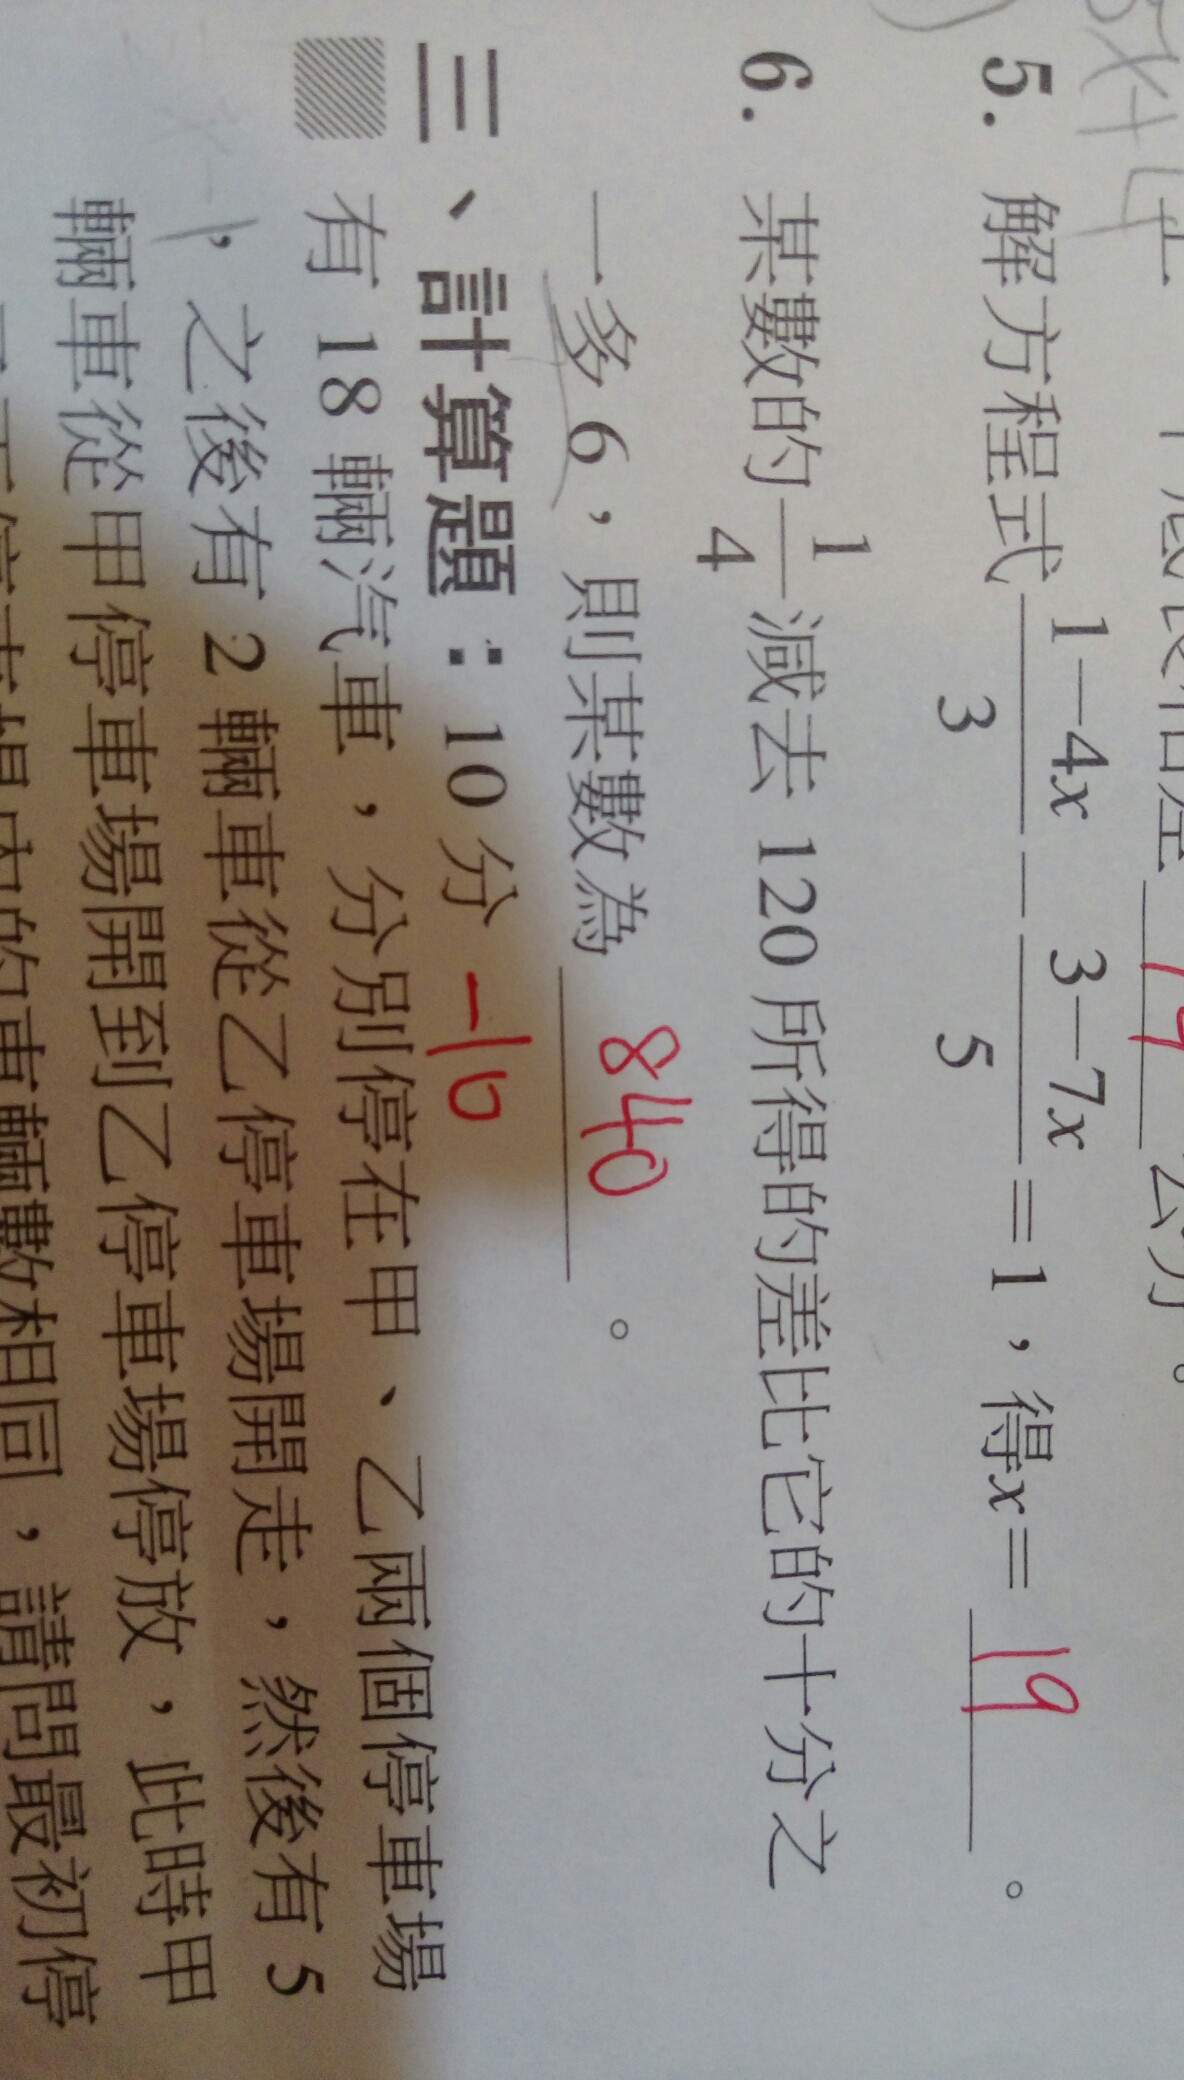 5x+4
19 公分。
5. 解方程式 (1−4x)/3 − (3−7x)/5 = 1,得x= 19 。
6. 某數的 1/4 減去 120 所得的差比它的十分之
一多 6,則某數為 840 。
三、計算題:10 分 -10
有 18 輛汽車,分別停在甲、乙兩個停車場
,之後有 2 輛車從乙停車場開走,然後有 5
輛車從甲停車場開到乙停車場停放,此時甲
的車輛數相同,請問最初停